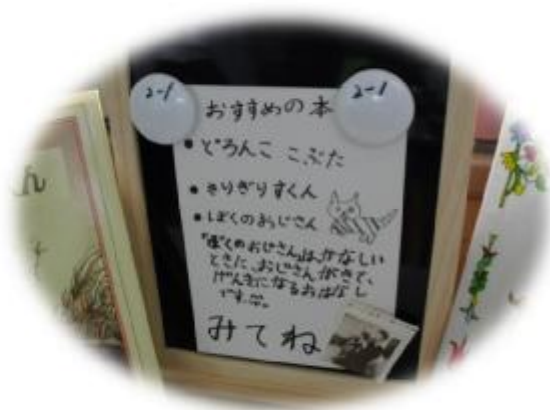 2-1
2-1
おすすめの本
・どろんこ こぶた
・きりぎりすくん
・ぼくのおじさん
「ぼくのおじさん」は、かなしい
ときに、おじさんがきて、
げんきになるおはなし
です。
みてね
ん